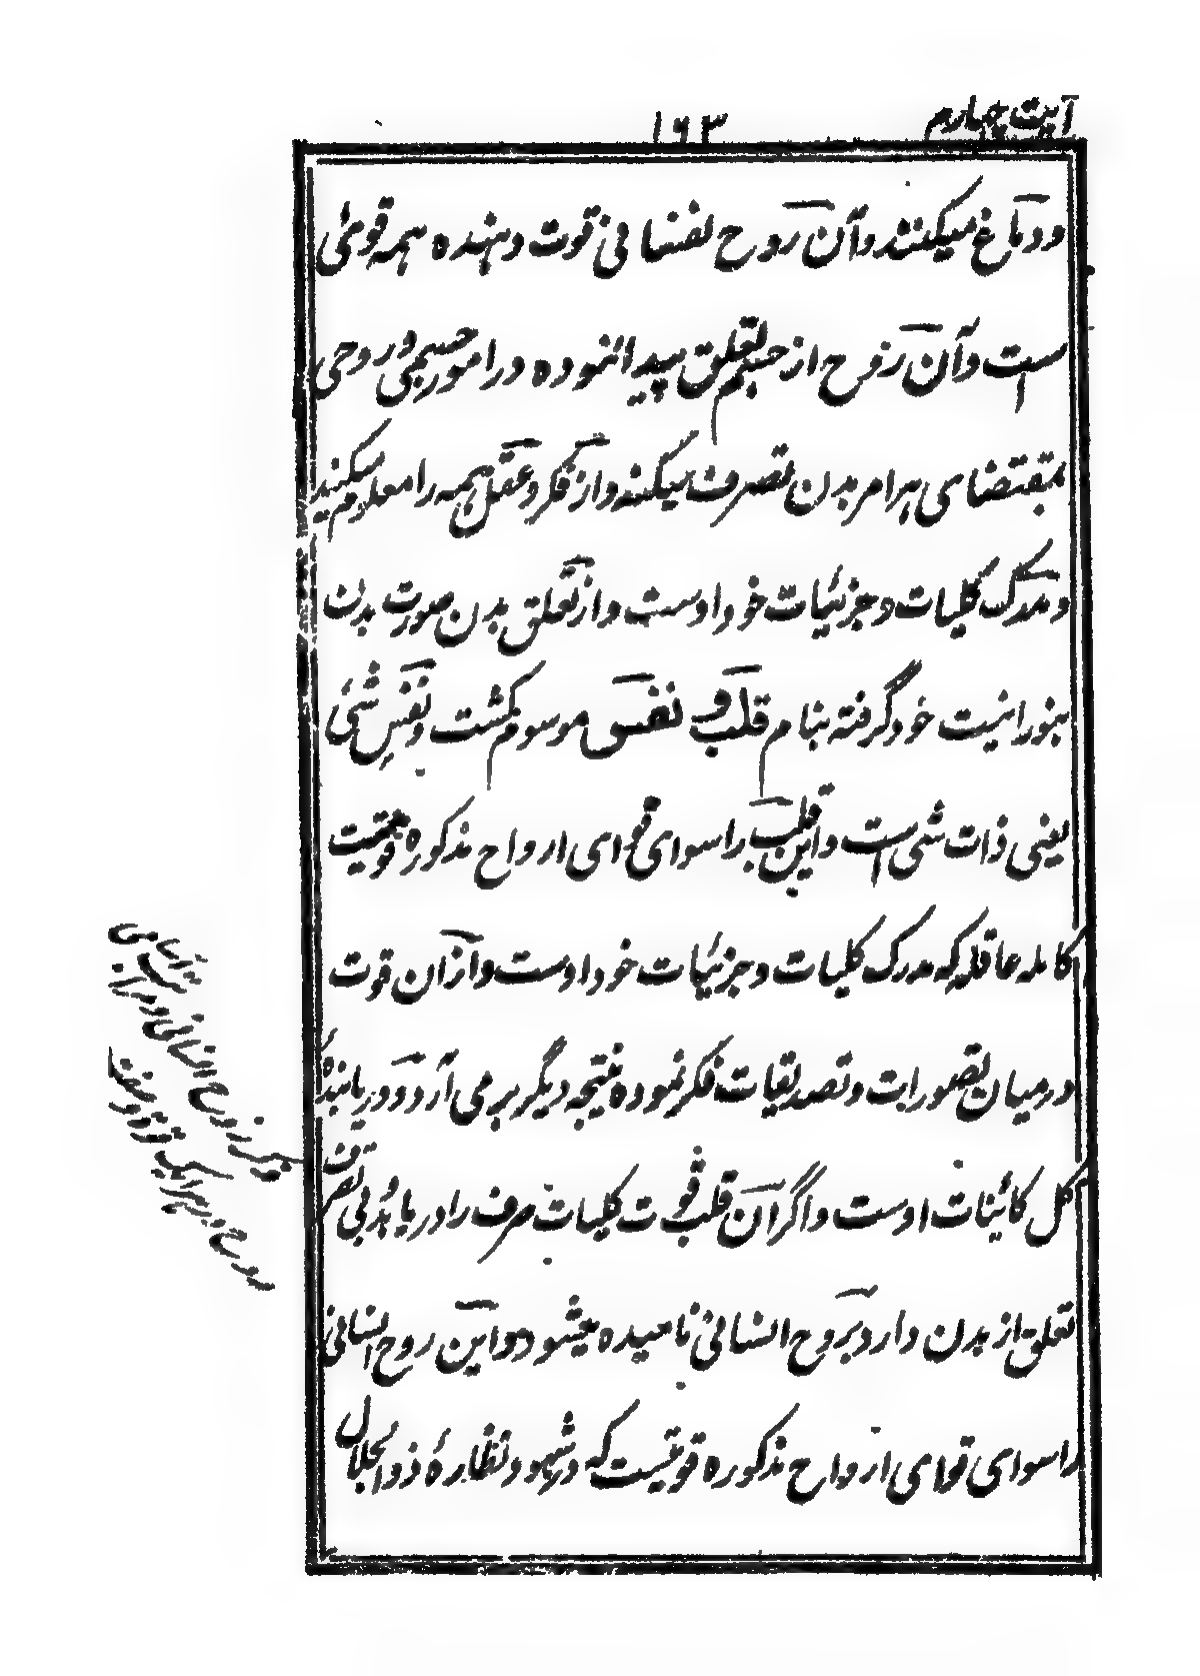 آیت چهارم
۱۶۳
و دماغ میکنند و آن روح نفسانی قوت دهنده همه قوی
است و آن روح از جسم تعلق پیدا نموده در امور جسمی و روحی
بمقتضای هر امر بدن تصرف میکند و از فکر و عقل همه را معلوم میکند
و مدرک کلیات و جزئیات خود اوست و از تعلق بدن صورت بدن
بنورانیت خود گرفته بنام قلب و نفس موسوم گشت و نفس شی
یعنی ذات شی است و این قلب را سوای قوای ارواح مذکوره قوتیست
کامله عاقله که مدرک کلیات و جزئیات خود اوست و از آن قوت
درمیان تصورات و تصدیقات فکر نموده نتیجه دیگر بر می آرد و دریابندهٔ
کل کائنات اوست و اگر آن قلب قوت کلیات صرف را دریابد بی تصرف
تعلق از بدن دارد بروح انسانی نامیده میشود و این روح انسانی
را سوای قوای ارواح مذکوره قوتیست که در شهود و نظارهٔ ذوالجلال
دیگر روح انسانی
روح در هر یک قوت و صفت